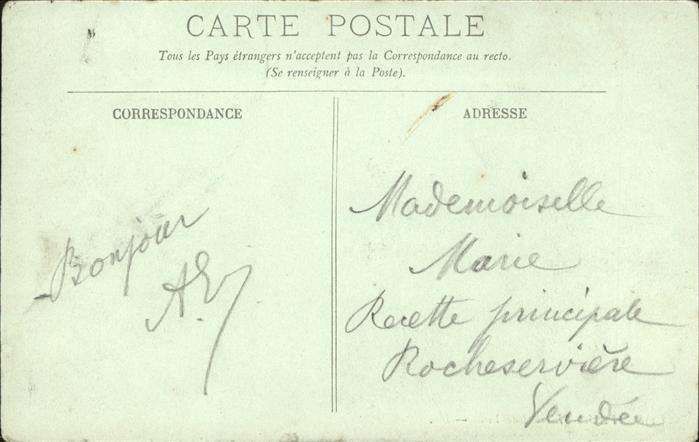 CARTE POSTALE
Tous les Pays étrangers n'acceptent pas la Correspondance au recto.
(Se renseigner à la Poste).
CORRESPONDANCE
Bonjour
ADRESSE
Mademoiselle
Marie
Recette principale
Rocheservière
Vendée